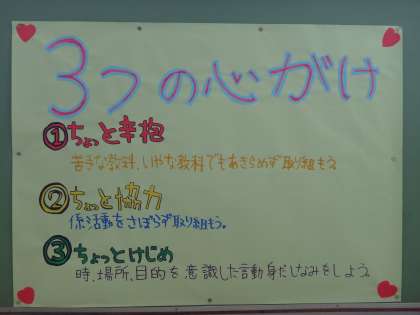 3つの心がけ
①ちょっと辛抱
苦手な教科、いやな教科でもあきらめず取り組もう。
②ちょっと協力
係活動をさぼらず取り組もう。
③ちょっとけじめ
時、場所、目的を意識した言動身だしなみをしよう。